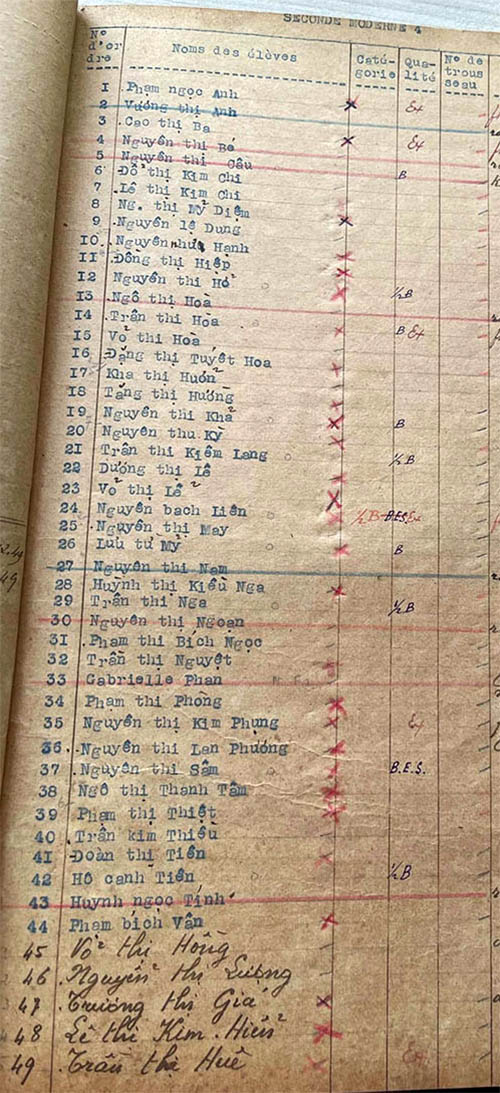 SECONDE MODERNE 4
N° d'or dre Noms des élèves Caté- gorie Qua- lité N° de trous seau
1 Phạm ngọc Anh
2 Vương thị Anh Ex
3 Cao thị Ba
4 Nguyễn thị Bé Ex
5 Nguyễn thị Câu
6 Đỗ thị Kim Chi B
7 Lê thị Kim Chi
8 Ng. thị Mỹ Diệm
9 Nguyễn lệ Dung
10 Nguyễn như Hạnh
11 Đồng thị Hiệp
12 Nguyễn thị Hồ
13 Ngô thị Hoà ½B
14 Trần thị Hòa
15 Võ thị Hoà B Ex
16 Đặng thị Tuyết Hoa
17 Kha thị Huôn
18 Tăng thị Hương
19 Nguyễn thị Khả B
20 Nguyễn thu Kỳ
21 Trần thị Kiêm Lang ½B
22 Dương thị Lê
23 Võ thị Lễ
24 Nguyễn bạch Liên ½B B.E.S. Ex
25 Nguyễn thị May
26 Lưu tư Mỹ B
27 Nguyễn thị Nam
28 Huỳnh thị Kiều Nga
29 Trần thị Nga ½B
30 Nguyễn thị Ngoạn
31 Phạm thị Bích Ngọc
32 Trần thị Nguyệt
33 Gabrielle Phan
34 Phạm thị Phòng
35 Nguyễn thị Kim Phụng Ex
36 Nguyễn thị Lan Phương
37 Nguyễn thị Sâm B.E.S.
38 Ngô thị Thanh Tâm
39 Phạm thị Thiệt
40 Trần kim Thiều
41 Đoàn thị Tiền
42 Hồ cạnh Tiên ½B
43 Huỳnh ngọc Tính
44 Phạm bích Vân
45 Võ thị Hồng
46 Nguyễn thị Lượng
47 Trương thị Giá
48 Lê thị Kim Hiển
49 Trần thị Huê Ex